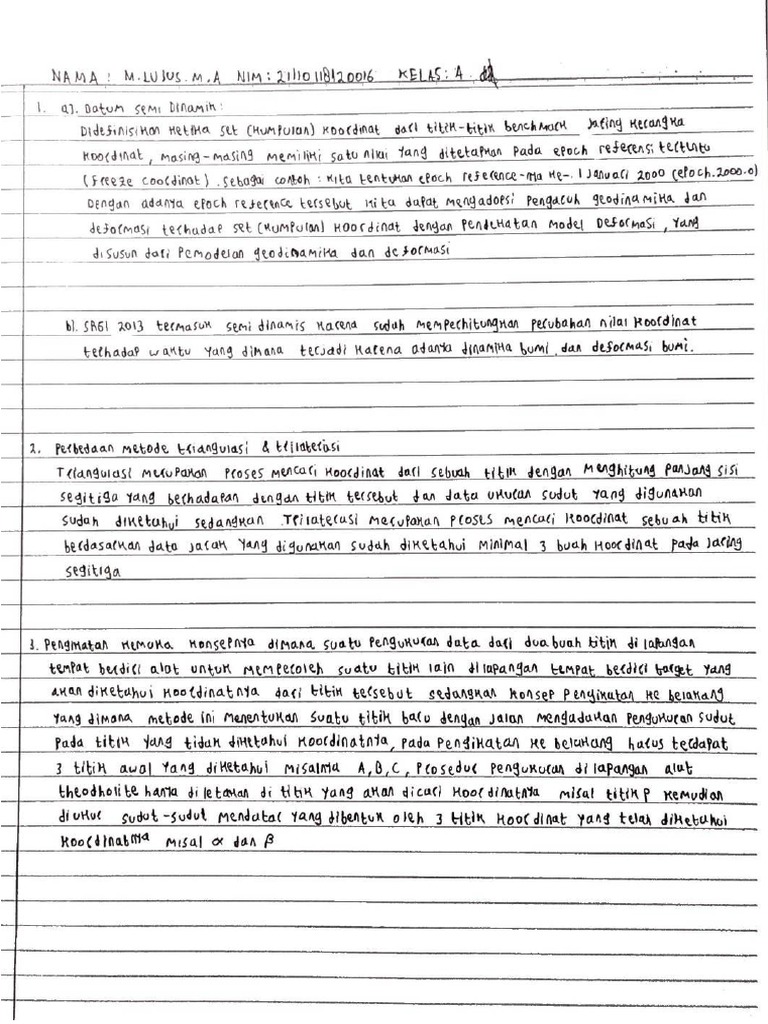 NAMA : M.LUJUS.M.A NIM : 21110118120016 KELAS : A
1. a). Datum Semi Dinamik :
Didefinisikan ketika set (kumpulan) koordinat dari titik-titik benchmark jaring kerangka
koordinat, masing-masing memiliki satu nilai yang ditetapkan pada epoch referensi tertentu
(freeze coordinat). Sebagai contoh : kita tentukan epoch reference-nya ke-. 1 Januari 2000 (epoch.2000.0)
Dengan adanya epoch reference tersebut kita dapat mengadopsi pengaruh geodinamika dan
deformasi terhadap set (kumpulan) koordinat dengan pendekatan model Deformasi, yang
disusun dari pemodelan geodinamika dan deformasi
b). SRGI 2013 termasuk semi dinamis karena sudah memperhitungkan perubahan nilai koordinat
terhadap waktu yang dimana terjadi karena adanya dinamika bumi dan deformasi bumi.
2. Perbedaan metode triangulasi & trilaterasi
Triangulasi merupakan proses mencari koordinat dari sebuah titik dengan menghitung panjang sisi
segitiga yang berhadapan dengan titik tersebut dan data ukuran sudut yang digunakan
sudah diketahui sedangkan Trilaterasi merupakan proses mencari koordinat sebuah titik
berdasarkan data jarak yang digunakan sudah diketahui minimal 3 buah koordinat pada jaring
segitiga
3. Pengikatan kemuka konsepnya dimana suatu pengukuran data dari dua buah titik di lapangan
tempat berdiri alat untuk memperoleh suatu titik lain dilapangan tempat berdiri target yang
akan diketahui koordinatnya dari titik tersebut sedangkan konsep pengikatan ke belakang
yang dimana metode ini menentukan suatu titik baru dengan jalan mengadakan pengukuran sudut
pada titik yang tidak diketahui koordinatnya, pada pengikatan ke belakang harus terdapat
3 titik awal yang diketahui misalnya A,B,C, Prosedur pengukuran di lapangan alat
theodholite hanya diletakan di titik yang akan dicari koordinatnya misal titik p kemudian
diukur sudut-sudut mendatar yang dibentuk oleh 3 titik koordinat yang telah diketahui
koordinatnya misal α dan β